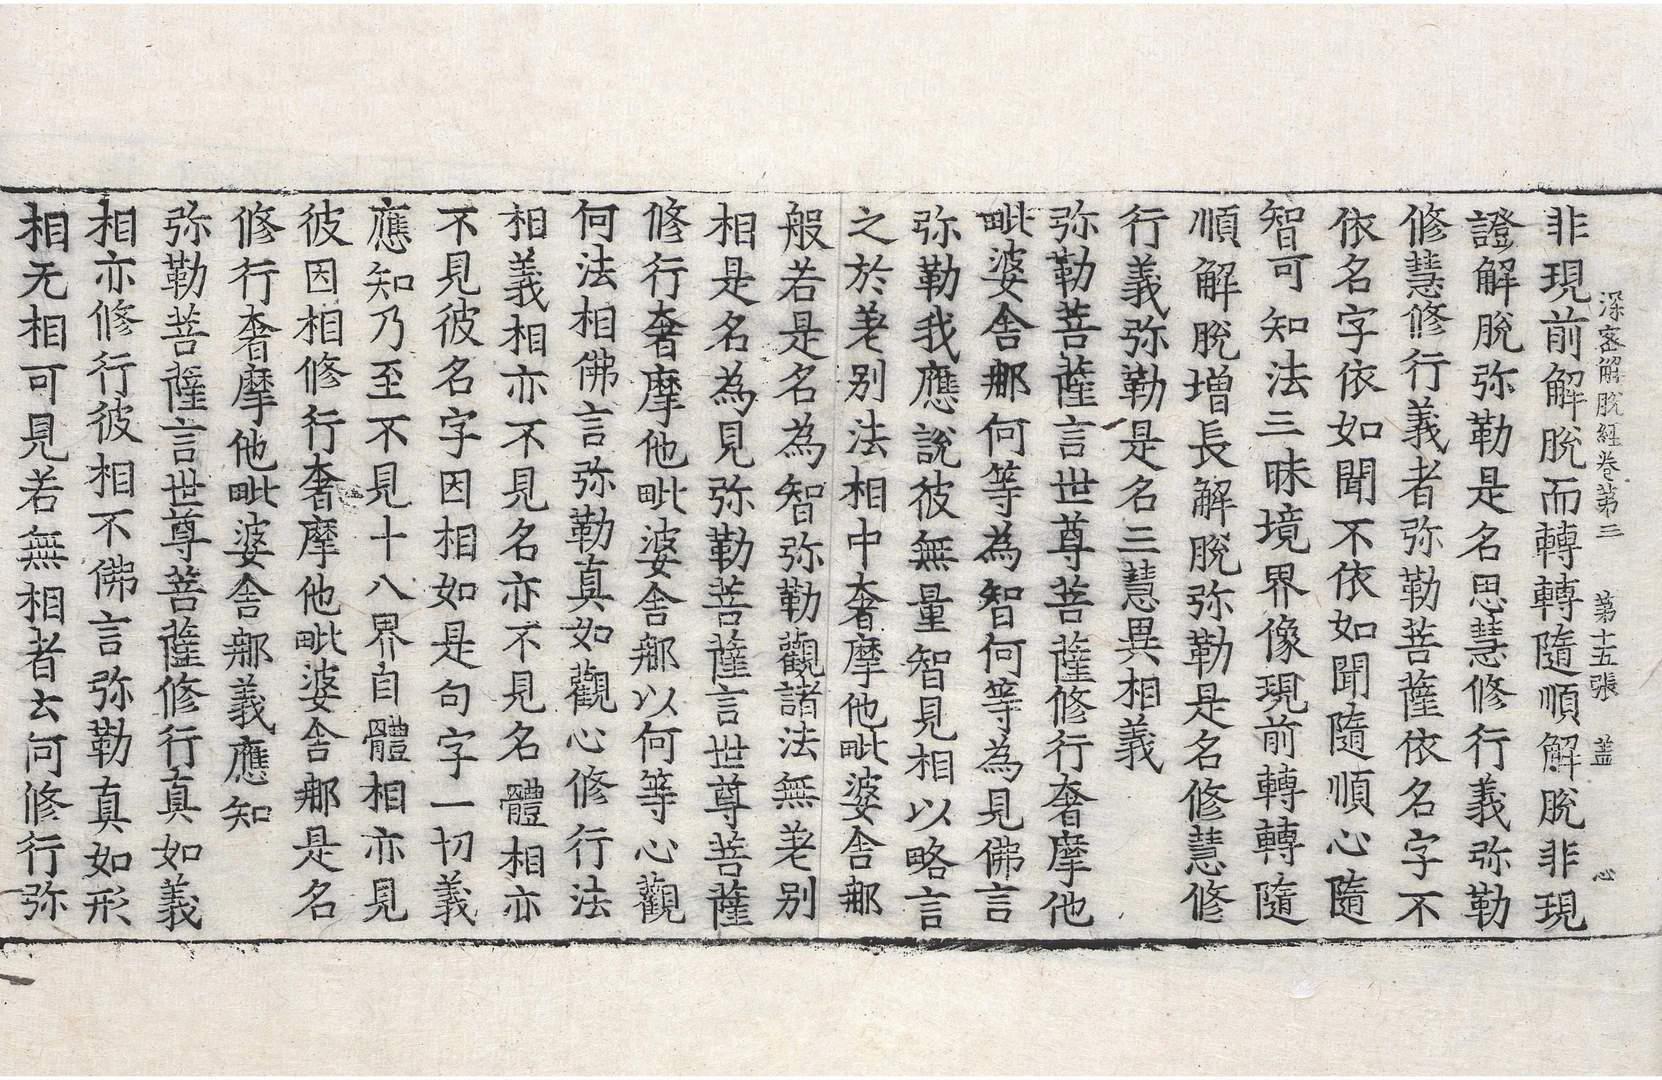 深密解脫經卷第三　第十五張　盖　心
非現前解脫而轉轉隨順解脫非現
證解脫弥勒是名思慧修行義弥勒
修慧修行義者弥勒菩薩依名字不
依名字依如聞不依如聞隨順心隨
智可知法三昧境界像現前轉轉隨
順解脫增長解脫弥勒是名修慧修
行義弥勒是名三慧異相義
弥勒菩薩言世尊菩薩修行奢摩他
毗婆舍那何等為智何等為見佛言
弥勒我應說彼無量智見相以略言
之於差别法相中奢摩他毗婆舍那
般若是名為智弥勒觀諸法無差别
相是名為見弥勒菩薩言世尊菩薩
修行奢摩他毗婆舍那以何等心觀
何法相佛言弥勒真如觀心修行法
相義相亦不見名亦不見名體相亦
不見彼名字因相如是句字一切義
應知乃至不見十八界自體相亦見
彼因相修行奢摩他毗婆舍那是名
修行奢摩他毗婆舍那義應知
弥勒菩薩言世尊菩薩修行真如義
相亦修行彼相不佛言弥勒真如形
相无相可見若無相者云何修行弥